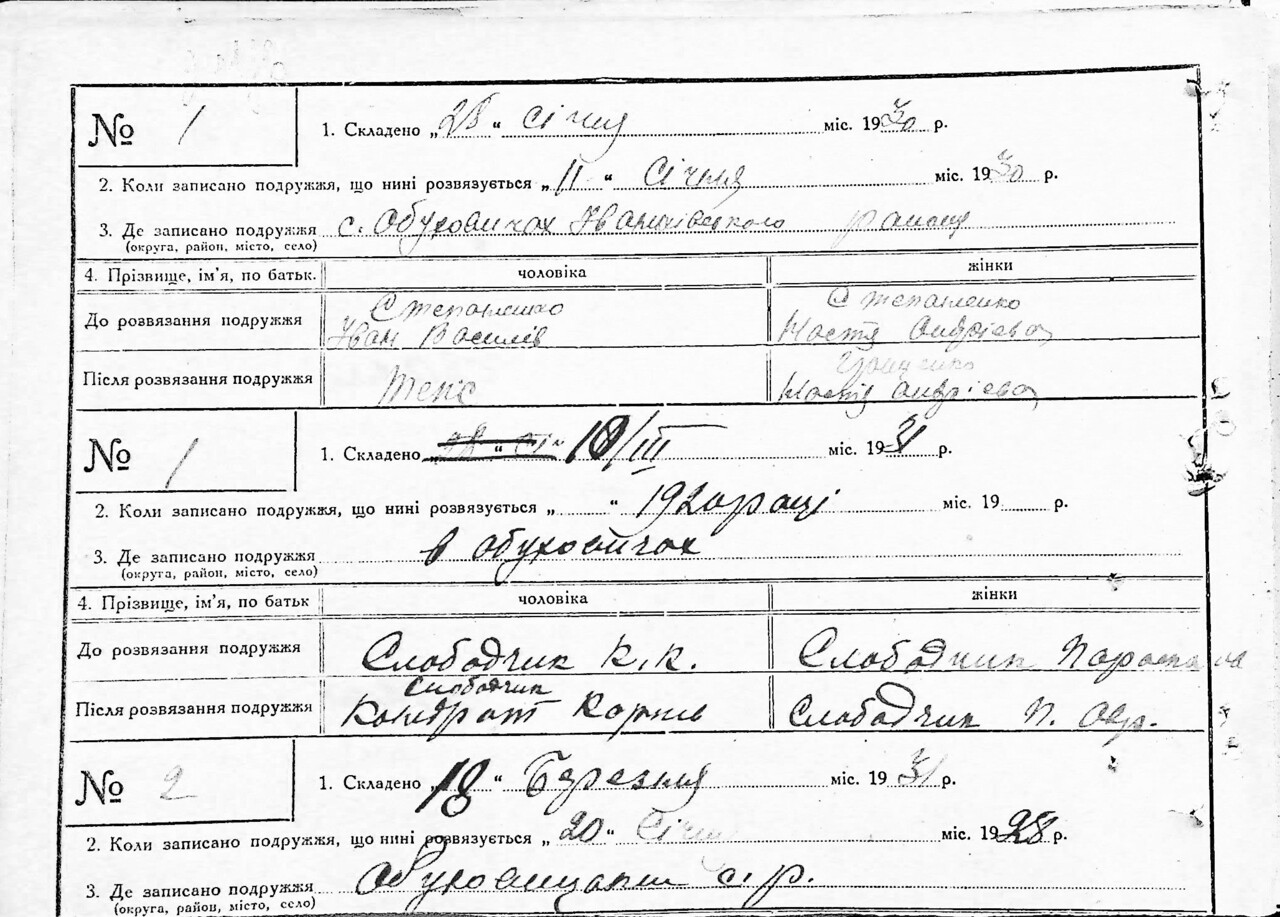 № 1
1. Складено „28“ Січня міс. 1930 р.
2. Коли записано подружжя, що нині розвязується „11“ Січня міс. 1930 р.
3. Де записано подружжя с. Обуховичах Іванківського району
(округа, район, місто, село)
4. Прізвище, ім’я, по батьк. чоловіка жінки
До розвязання подружжя Степаненко Іван Василів Степаненко Настя Андрієва
Після розвязання подружжя Настя Андрієва
№ 1
1. Складено 10/III міс. 1931 р.
2. Коли записано подружжя, що нині розвязується „ “ 1920 році міс. 19 р.
3. Де записано подружжя в Обуховичах
(округа, район, місто, село)
4. Прізвище, ім’я, по батьк чоловіка жінки
До розвязання подружжя Слободчик К. К. Слободчик Параска
Після розвязання подружжя Слободчик Кондрат Корнів Слободчик П.
№ 2
1. Складено „18“ Березня міс. 1931 р.
2. Коли записано подружжя, що нині розвязується „20“ Січня міс. 1928 р.
3. Де записано подружжя с. р.
(округа, район, місто, село)